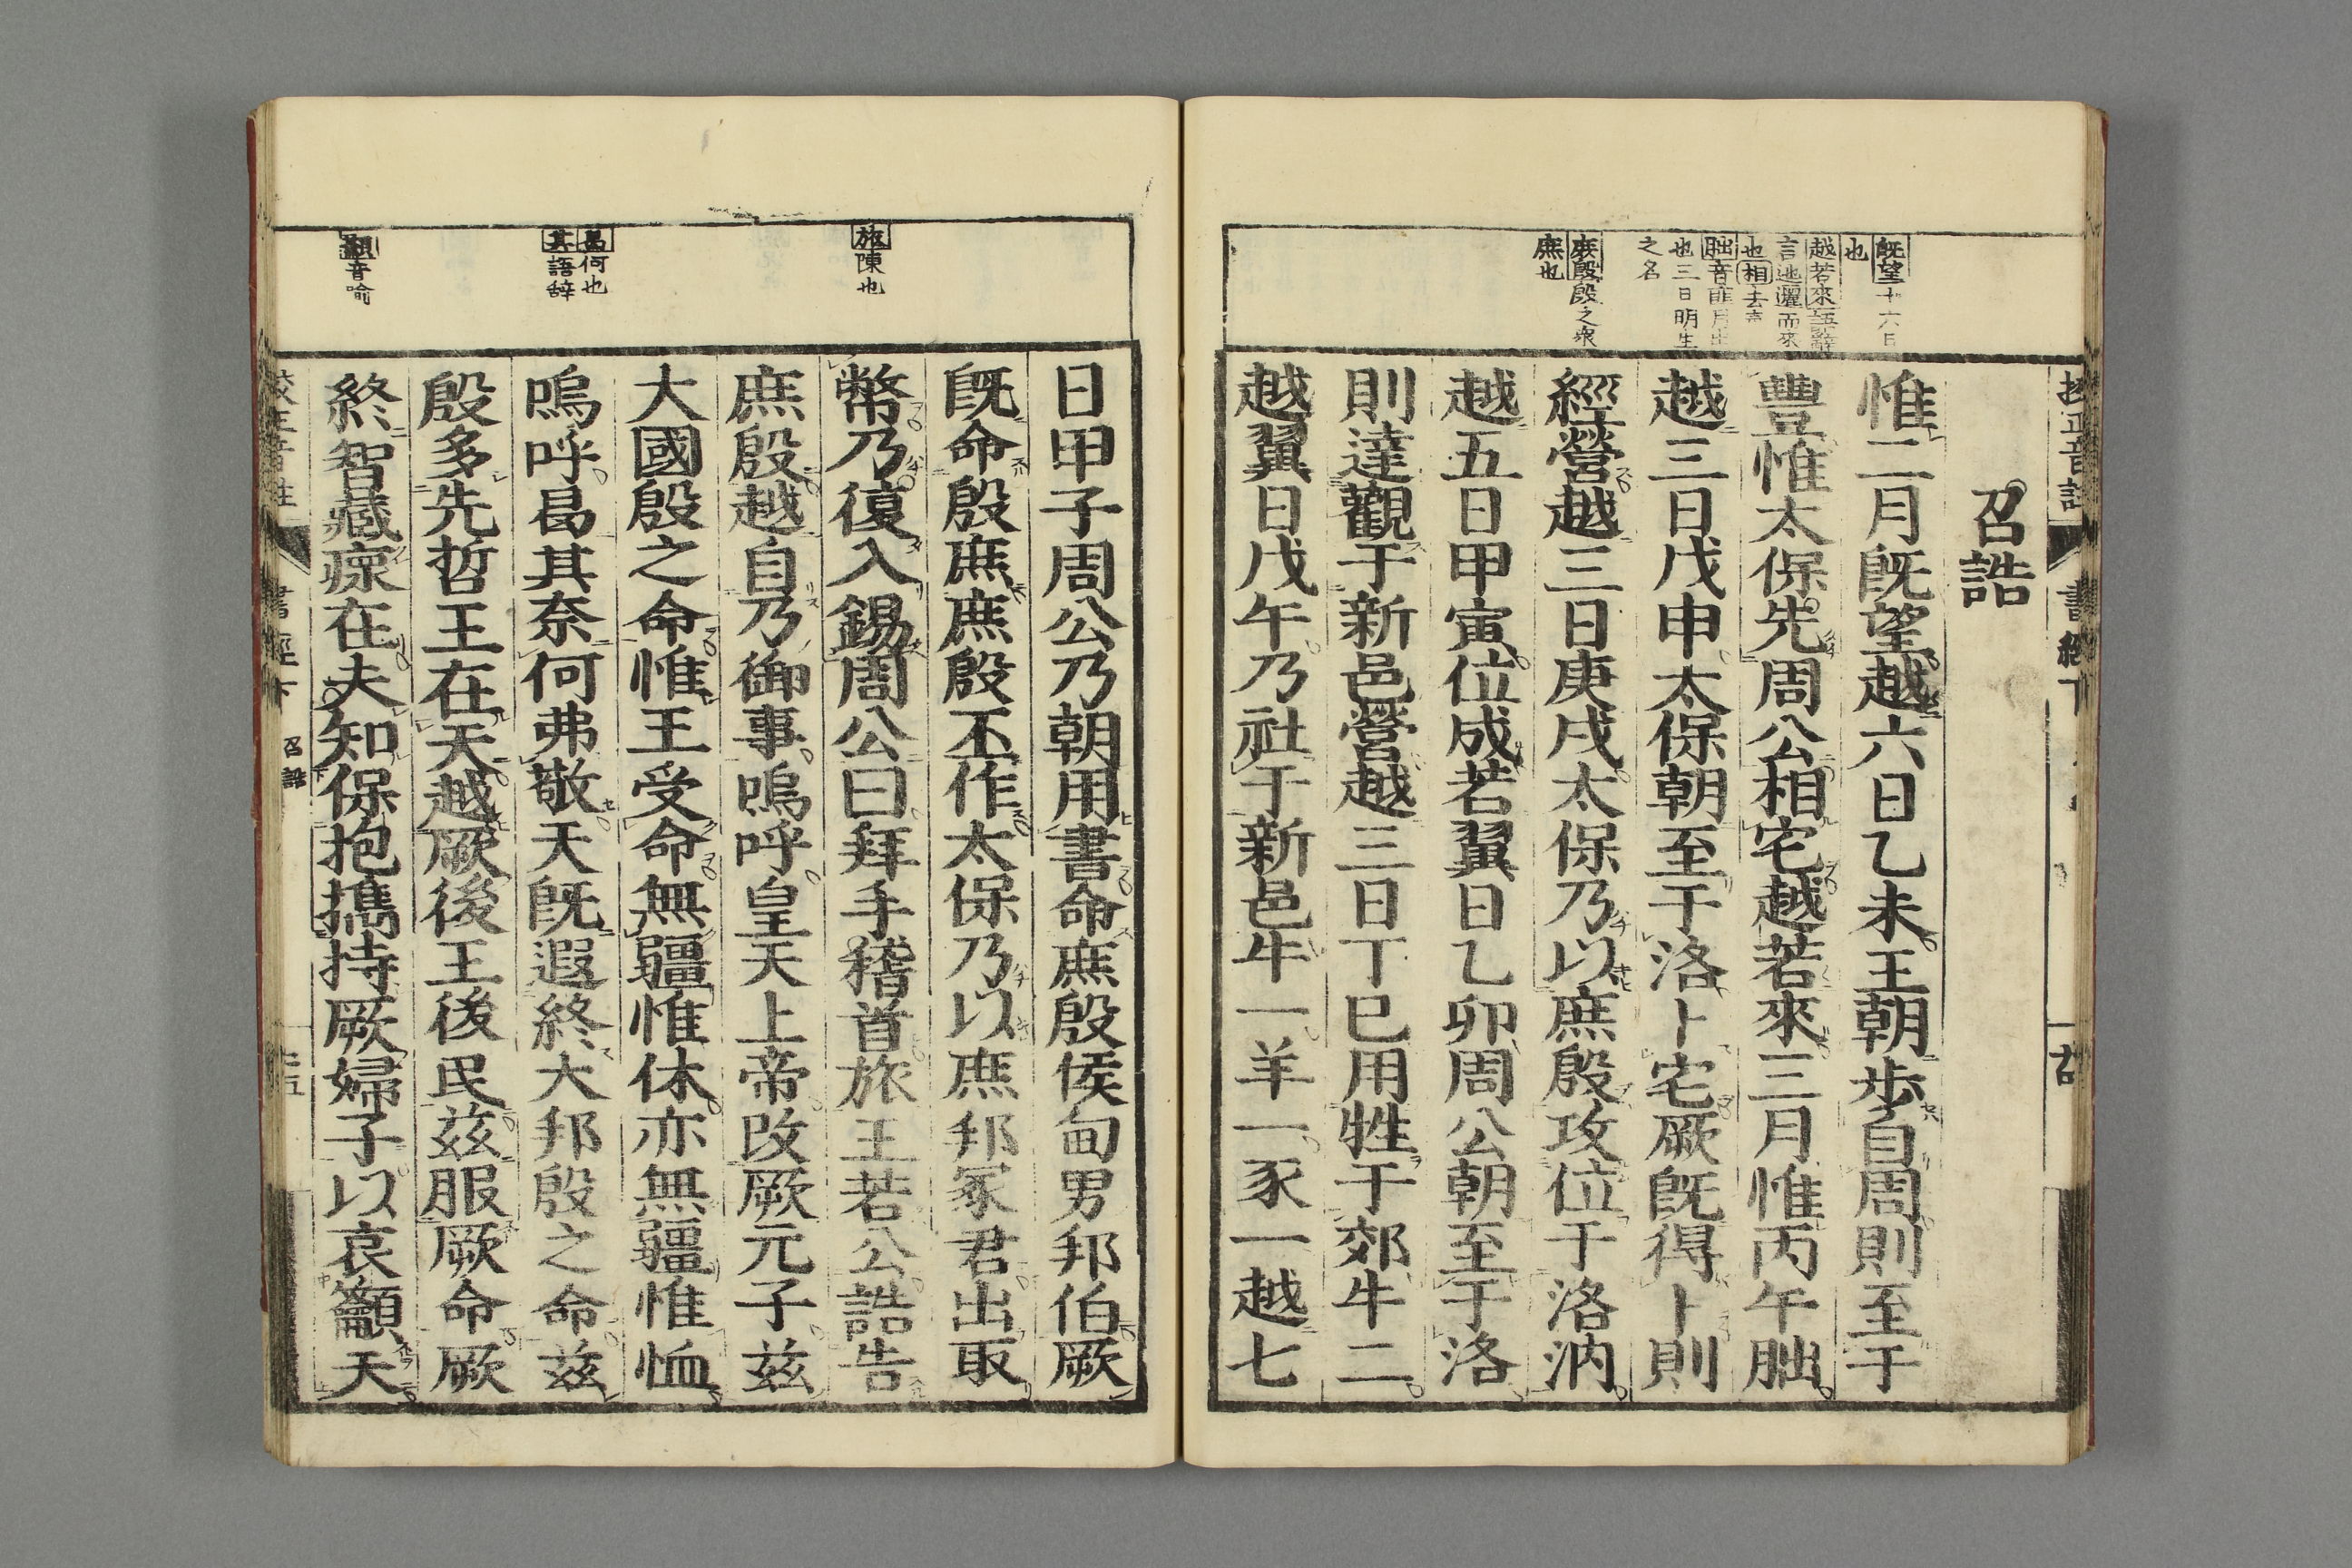 既望十六日
也
越若來語辭
言迤邐而來
也相去声
朏音朏月出
也三日明生
之名
庶殷殷之衆
庶也
召誥
惟二月既望越六日乙未王朝歩自周則至于
豐惟太保先周公相宅越若來三月惟丙午朏
越三日戊申太保朝至于洛卜宅厥既得卜則
經營越三日庚戌太保乃以庶殷攻位于洛汭
越五日甲寅位成若翼日乙卯周公朝至于洛
則達觀于新邑營越三日丁巳用牲于郊牛二
越翼日戊午乃社于新邑牛一羊一豕一越七
書經下
旅陳也
曷何也
其語辞
籲音喻
日甲子周公乃朝用書命庶殷侯甸男邦伯厥
既命殷庶庶殷丕作太保乃以庶邦冢君出取
幣乃復入錫周公曰拜手稽首旅王若公誥告
庶殷越自乃御事嗚呼皇天上帝改厥元子茲
大國殷之命惟王受命無疆惟休亦無疆惟恤
嗚呼曷其奈何弗敬天既遐終大邦殷之命茲
殷多先哲王在天越厥後王後民茲服厥命厥
終智藏瘝在夫知保抱攜持厥婦子以哀籲天
書經下 召誥